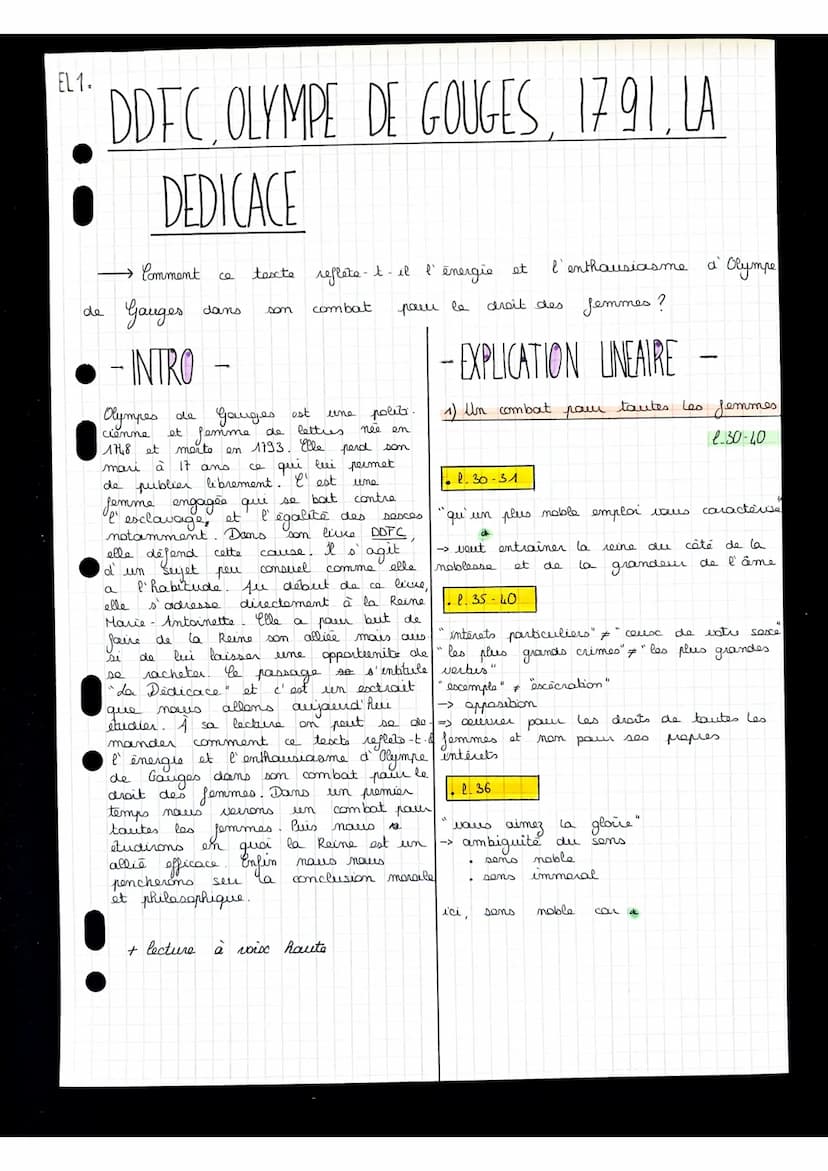 EL1.
DDFC, OLYMPE DE GOUGES, 1791, LA
DEDICACE
→ Comment ce texte reflète-t-il l'énergie et l'enthousiasme d'Olympe
de Gouges dans son combat pour le droit des femmes ?
- INTRO -
Olympes de Gouges est une politi-
cienne et femme de lettres née en
1748 et morte en 1793. Elle perd son
mari à 17 ans ce qui lui permet
de publier librement. C'est une
femme engagée qui se bat contre
l'esclavage, et l'égalité des sexes
notamment. Dans son livre DDFC,
elle défend cette cause. Il s'agit
d'un sujet peu consuel comme elle
a l'habitude. Au début de ce livre,
elle s'adresse directement à la Reine
Marie-Antoinette. Elle a pour but de
faire de la Reine son alliée mais aus
si de lui laisser une opportunité de
se racheter. Le passage s'intitule
"La Dédicace" et c'est un extrait
que nous allons aujourd'hui
étudier. À sa lecture on peut se de-
mander comment ce texte reflète-t-il
l'énergie et l'enthousiasme d'Olympe
de Gouges dans son combat pour le
droit des femmes. Dans un premier
temps nous verrons un combat pour
toutes les femmes. Puis nous
étudirons en quoi la Reine est un
allié efficace. Enfin nous nous
pencherons sur la conclusion morale
et philosophique.
+ lecture à voix haute
- EXPLICATION LINEAIRE -
1) Un combat pour toutes les femmes
l.30-40
• l.30-31
"qu'un plus noble emploi vous caractérise"
*
→ veut entraîner la reine du côté de la
noblesse et de la grandeur de l'âme
• l.35-40
"intérêts particuliers" ≠ "ceux de votre sexe"
"les plus grands crimes" ≠ "les plus grandes
vertus"
"exemple" ≠ "exécration"
→ opposition
⇒ oeuvrer pour les droits de toutes les
femmes et non pour ses propres
intérêts
• l.36
"vous aimez la gloire"
→ ambiguïté du sens
• sens noble
• sens immoral
ici, sens noble car *